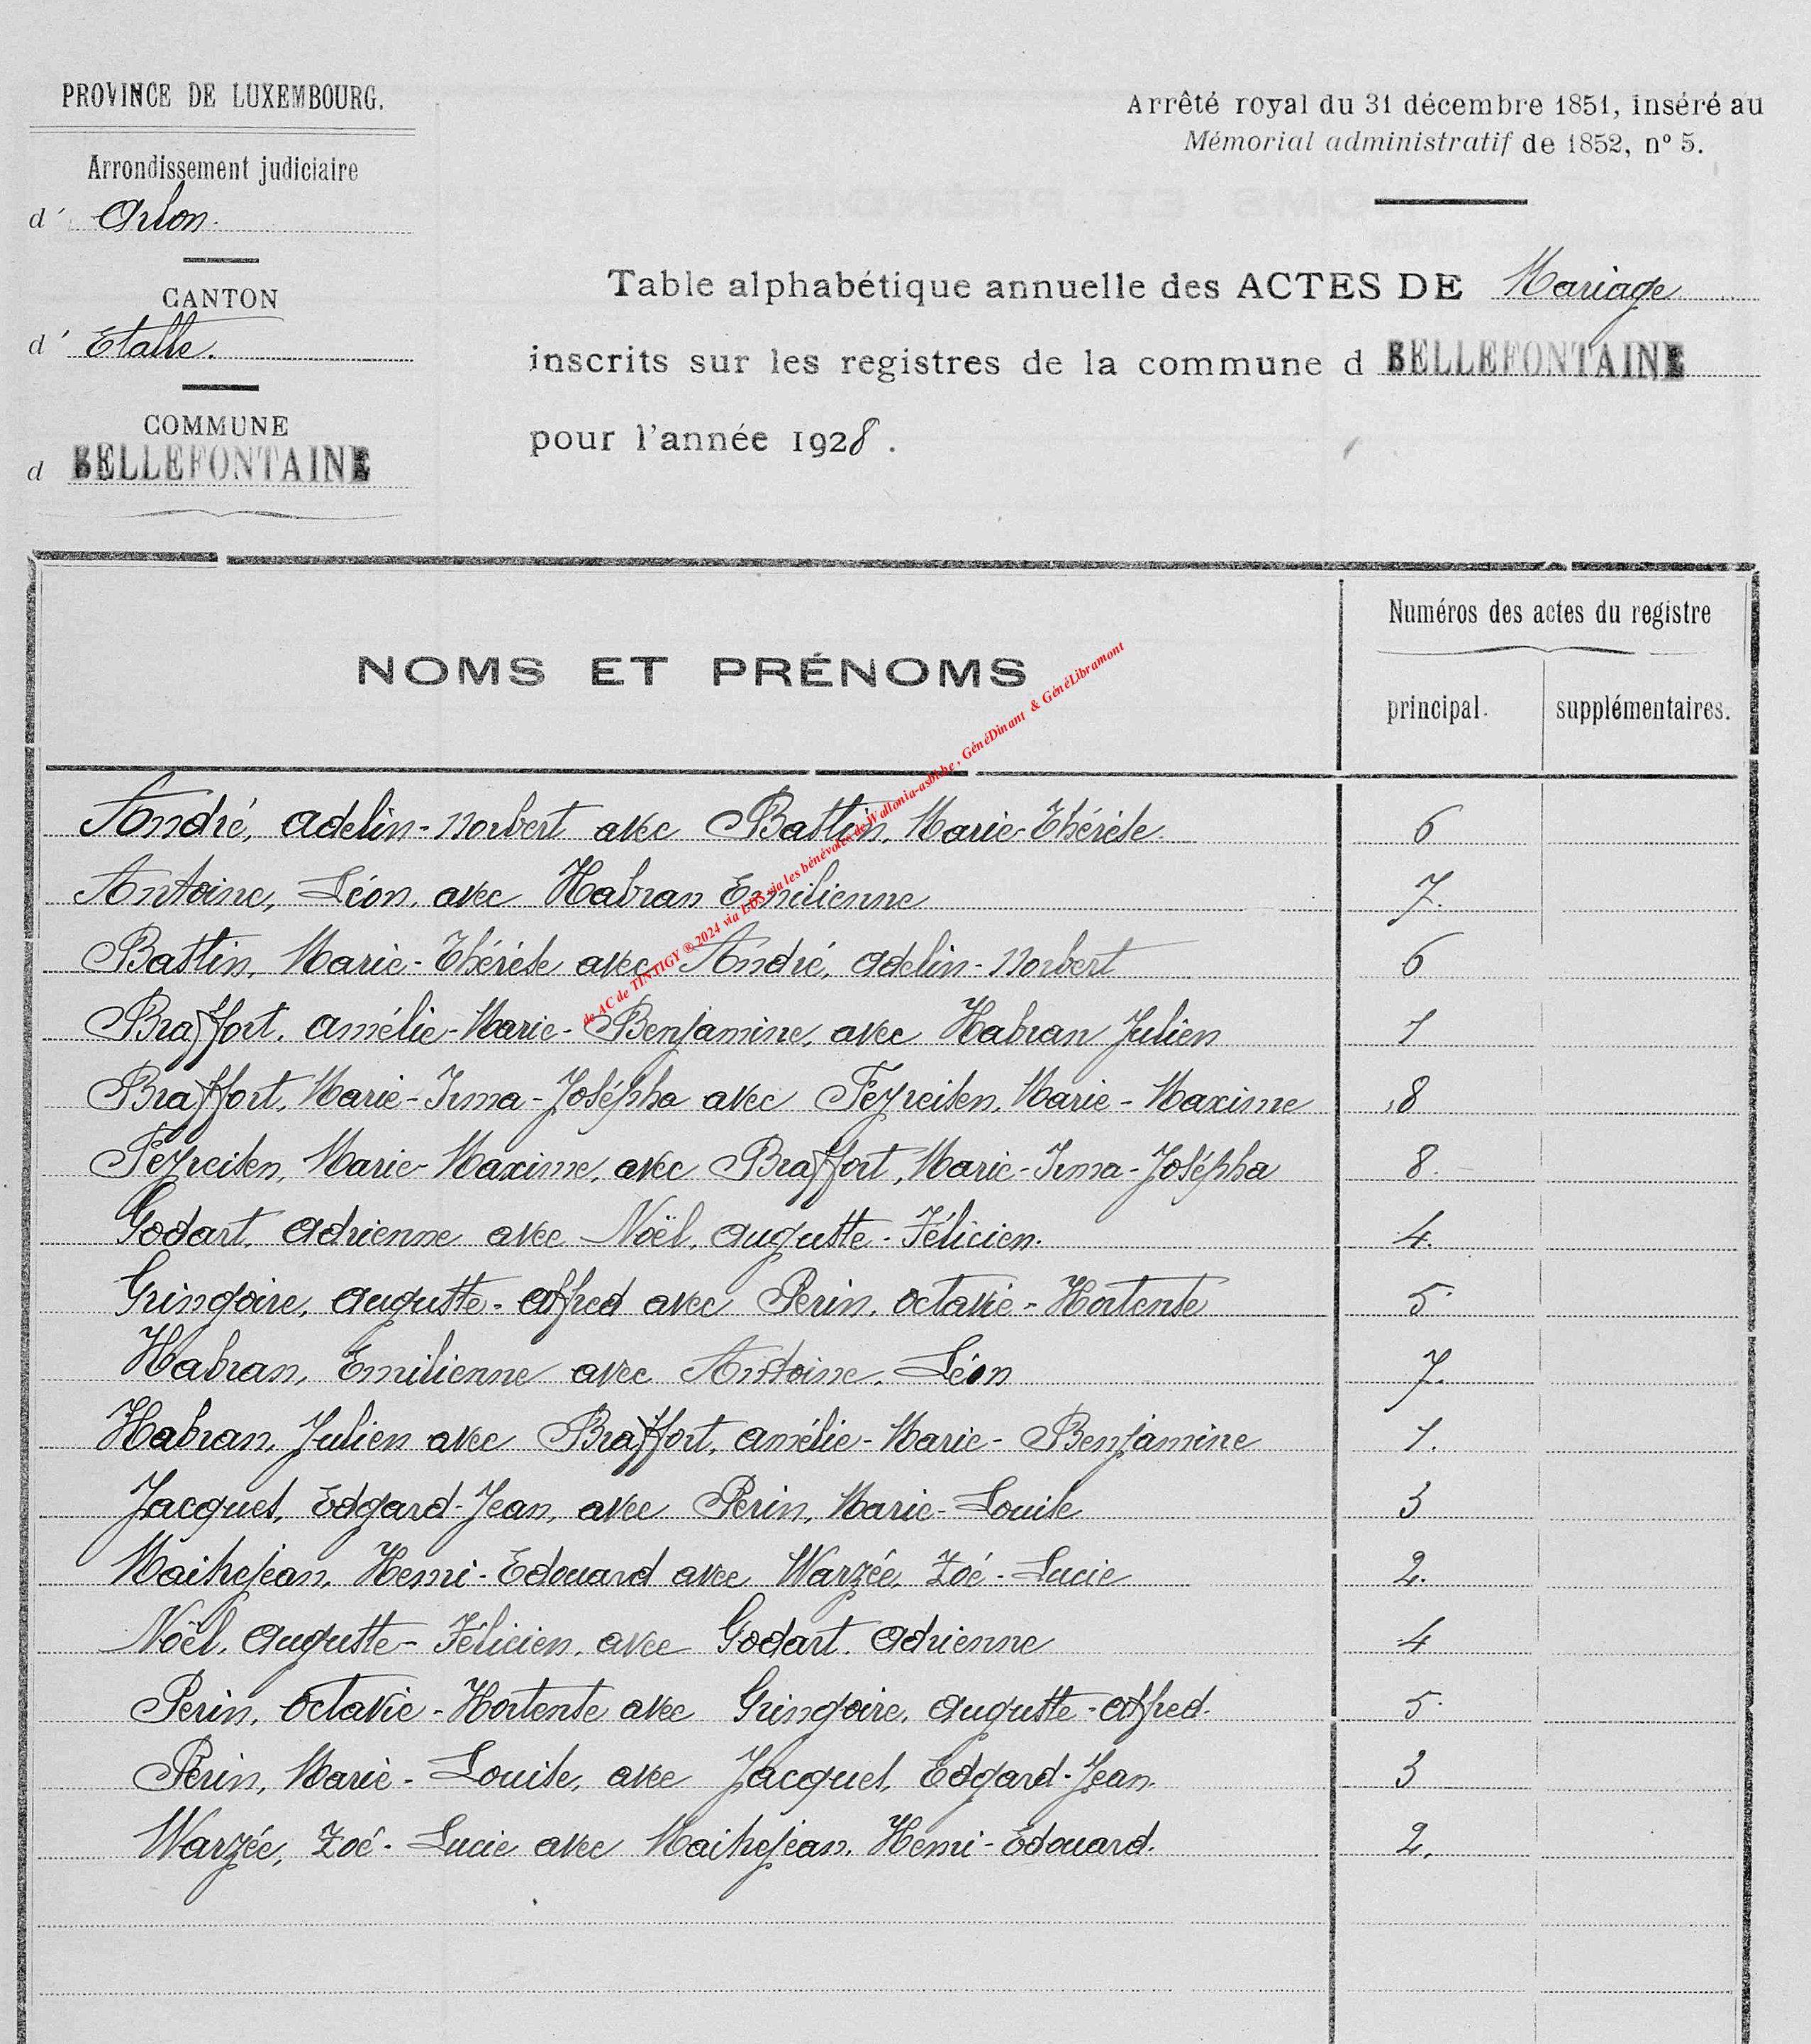 PROVINCE DE LUXEMBOURG.
Arrondissement judiciaire
d' Arlon.
CANTON
d' Etalle.
COMMUNE
d BELLEFONTAINE
Arrêté royal du 31 décembre 1851, inséré au
Mémorial administratif de 1852, nº 5.
Table alphabétique annuelle des ACTES DE Mariage
inscrits sur les registres de la commune d BELLEFONTAINE
pour l'année 1928.
NOMS ET PRÉNOMS
Numéros des actes du registre
principal. supplémentaires.
de AC de TINTIGY ® 2024 via LDS via les bénévoles de Wallonia-asbl.be, GénéDinant & GénéLibramont
André, Adelin-Norbert avec Bastin, Marie-Thérèse 6
Antoine, Léon, avec Habran Emilienne 7.
Bastin, Marie-Thérèse avec André, Adelin-Norbert 6
Braffort, Amélie-Marie-Benjamine, avec Habran Julien 1
Braffort, Marie-Irma-Josépha avec Feyreisen, Marie-Maxime 8
Feyreisen, Marie-Maxime, avec Braffort, Marie-Irma-Josépha 8.
Godart, Adrienne avec Noël, Auguste-Félicien. 4.
Gringoire, Auguste-Alfred avec Perin, Octavie-Hortense 5.
Habran, Emilienne avec Antoine, Léon 7.
Habran, Julien avec Braffort, Amélie-Marie-Benjamine 1.
Jacquet, Edgard-Jean, avec Perin, Marie-Louise 3
Maithejean, Henri-Edouard avec Warzée, Zoé-Lucie 2.
Noël, Auguste-Félicien, avec Godart, Adrienne 4
Perin, Octavie-Hortense avec Gringoire, Auguste-Alfred. 5.
Perin, Marie-Louise, avec Jacquet, Edgard-Jean. 3
Warzée, Zoé-Lucie avec Maithejean, Henri-Edouard. 2.